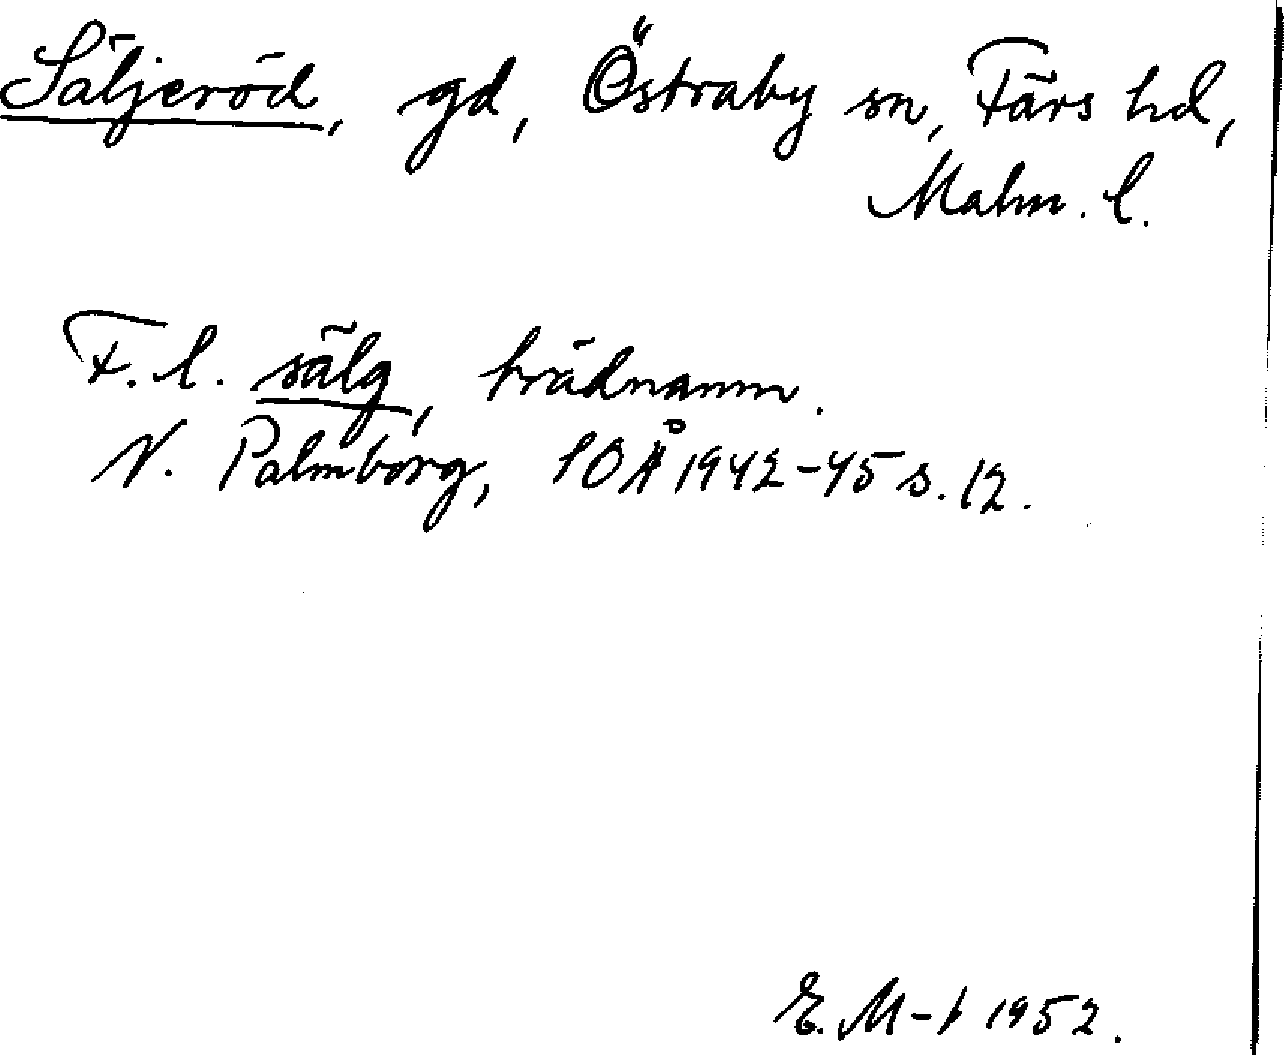 Säljeröd, gd, Östraby sn, Färs hd,
Malm. l.
F. l. sälg, trädnamn.
N. Palmborg, SOÅ 1942-45 s. 12.
E. M-t 1952.